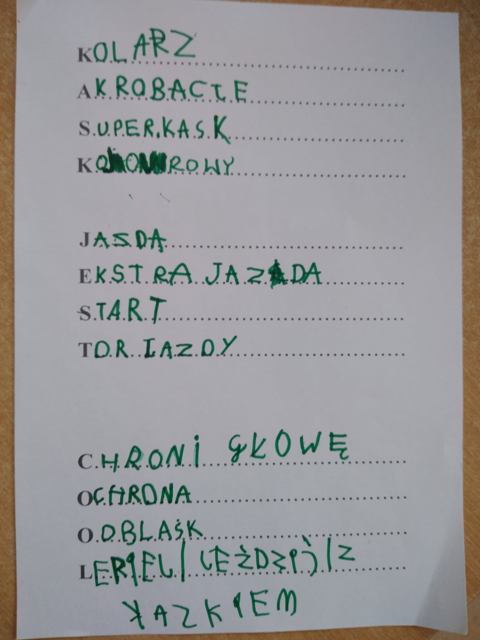 KOLARZ
AKROBACIE
SUPER KASK
KOLOROWY
JASDA
EKSTRA JAZDA
START
TOR IAZDY
CHRONI GŁOWĘ
OCHRONA
ODBLASK
LEPIEJ
KAZKIEM